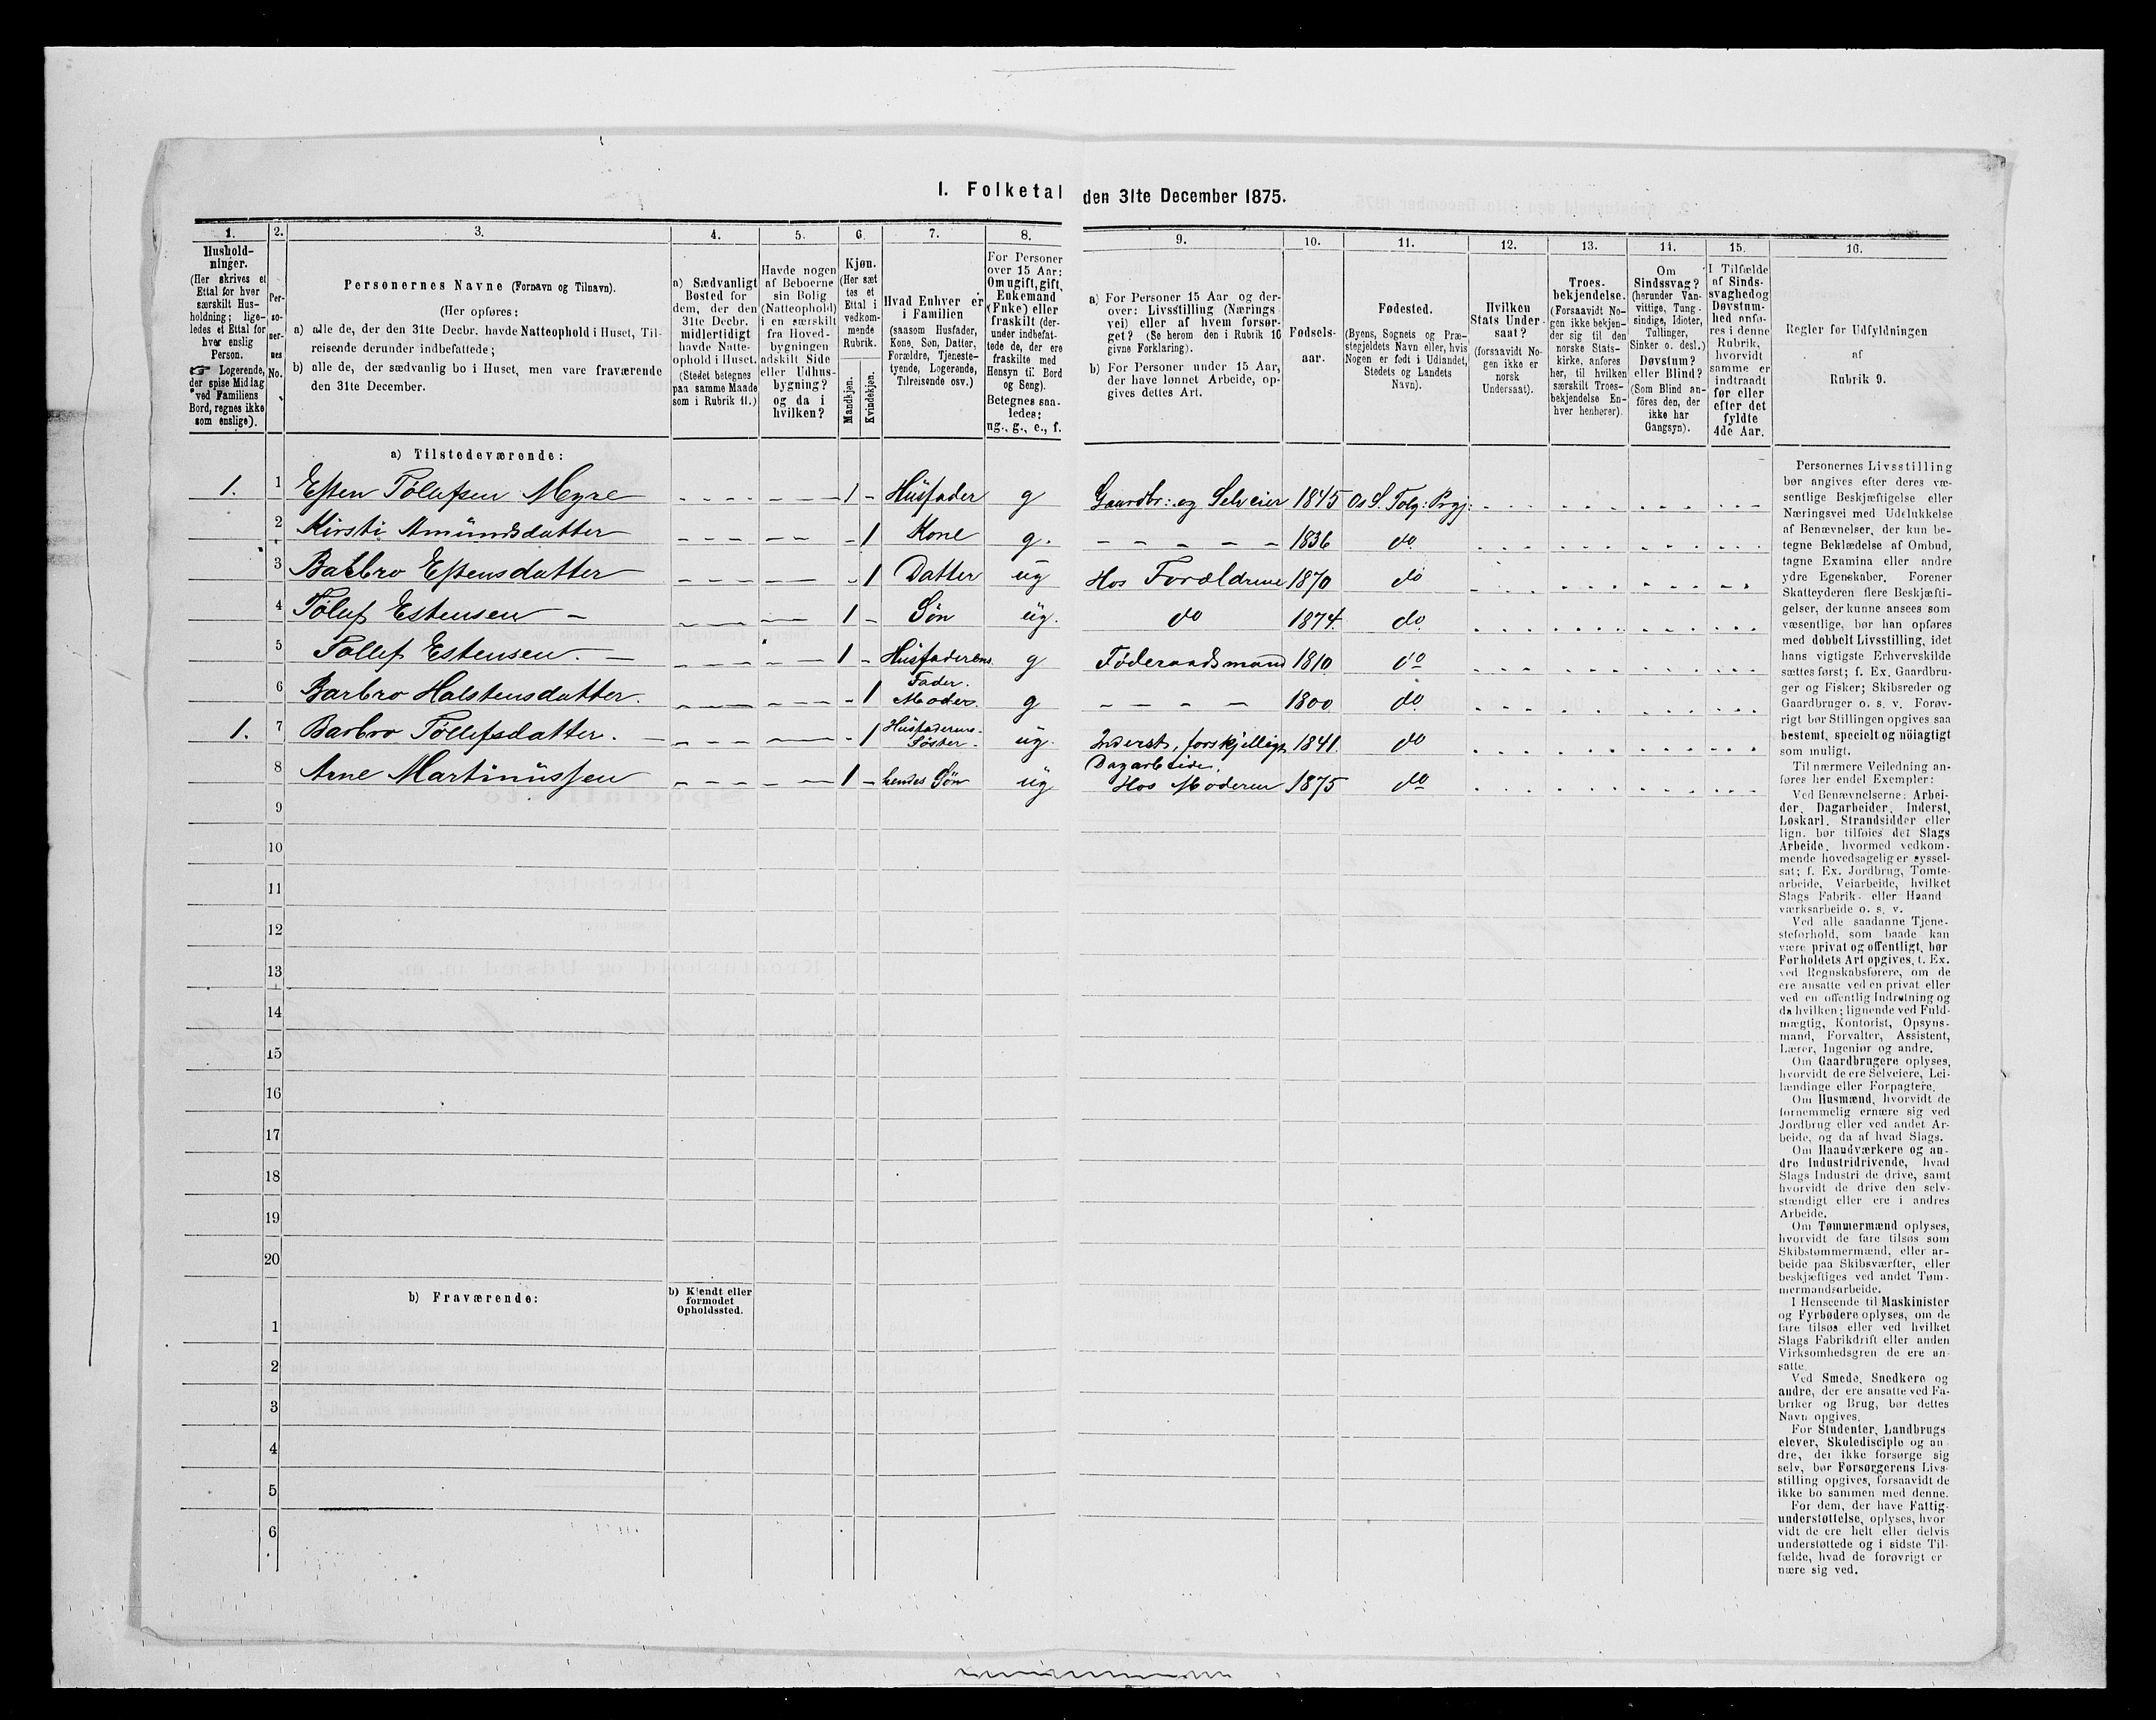 1. Folketal den 31te December 1875.
1. 2. 3. 4. 5. 6. 7. 8. 9. 10. 11. 12. 13. 14. 15. 16.
Hushold-
ninger.
(Her skrives et
Ettal for hver
særskilt Hus-
holdning; lige-
ledes et Ettal for
hver enslig
Person.
☞ Logerende,
der spise Middag
ved Familiens
Bord, regnes ikke
som enslige).
Per-
so-
ner-
nes
No.
Personernes Navne (Fornavn og Tilnavn).
(Her opføres:
a) alle de, der den 31te Decbr. havde Natteophold i Huset, Til-
reisende derunder indbefattede;
b) alle de, der sædvanlig bo i Huset, men vare fraværende
den 31te December.
a) Sædvanligt
Bosted for
dem, der den
31te Decbr.
midlertidigt
havde Natte-
ophold i Huset.
(Stedet betegnes
paa samme Maade
som i Rubrik 11.)
Havde nogen
af Beboerne
sin Bolig
(Natteophold)
i en særskilt
fra Hoved-
bygningen
adskilt Side
eller Udhus-
bygning?
og da i
hvilken?
Kjøn.
(Her sæt
tes et
Ettal i
vedkom-
mende
Rubrik.
Mandkjøn.
Kvindekjøn.
Hvad Enhver er
i Familien
(saasom Husfader,
Kone, Søn, Datter,
Forældre, Tjeneste-
tyende, Logerende,
Tilreisende osv.)
For Personer
over 15 Aar:
Om ugift, gift,
Enkemand
(Enke) eller
fraskilt (der-
under indbefat-
tede de, der ere
fraskilte med
Hensyn til Bord
og Seng).
Betegnes saa-
ledes:
ug., g., e., f.
a) For Personer 15 Aar og der-
over: Livsstilling (Nærings
vei) eller af hvem forsør-
get? (Se herom den i Rubrik 16
givne Forklaring).
b) For Personer under 15 Aar,
der have lønnet Arbeide, op-
gives dettes Art.
Fødsels-
aar.
Fødested.
(Byens, Sognets og Præ-
stegjeldets Navn eller, hvis
Nogen er født i Udlandet,
Stedets og Landets
Navn).
Hvilken
Stats Under-
saat?
(forsaavidt No-
gen ikke er
norsk
Undersaat).
Troes-
bekjendelse.
(Forsaavidt No-
gen ikke bekjen-
der sig til den
norske Stats-
kirke, anføres
her, til hvilken
særskilt Troes-
bekjendelse En-
hver henhører).
Om
Sindssvag?
(herunder Van-
vittige, Tung-
sindige, Idioter,
Tullinger,
Sinker o. desl.)
Døvstum?
eller Blind?
(Som Blind an-
föres den, der
ikke har
Gangsyn).
I Tilfælde
af Sinds-
svaghed og
Døvstum-
hed anfø-
res i denne
Rubrik,
hvorvidt
samme er
indtraadt
før eller
efter det
fyldte
4de Aar.
Regler for Udfyldningen
af
Rubrik 9.
a) Tilstedeværende:
1. 1 Esten Tølefsen Myre 1 - Husfader g Gaardbr: og Selveier 1845 Os S. Tolg: Prgj:
2 Kirsti Amundsdatter - 1 Kone g. 1836 do.
3 Barbro Estensdatter - 1 Datter ug Hos Forældrene 1870 do
4 Tølef Estensen 1 - Søn ug. do 1874. do.
5 Tollef Estensen. 1 - Husfaderens Fader. g Føderaadsmand 1810 do
6 Barbro Halstensdatter. - 1 Moder. g 1800 do.
1. 7 Barbro Tøllefsdatter. - 1 Husfaderens Søster. ug. Inderst, forskjelligt Dagarbeide. 1841. do
8 Arne Martinussen 1 - hendes Søn ug Hos Moderen 1875 do
9
10
11
12
13
14
15
16
17
18
19
20
b) Fraværende:
b) Kjendt eller
formodet
Opholdssted.
1
2
3
4
5
6
Personernes Livsstilling
bør angives efter deres væ-
sentlige Beskjæftigelse eller
Næringsvei med Udelukkelse
af Benævnelser, der kun be-
tegne Beklædelse af Ombud,
tagne Examina eller andre
ydre Egenskaber. Forener
Skatteyderen flere Beskjæfti-
gelser, der kunne ansees som
væsentlige, bør han opføres
med dobbelt Livsstilling, idet
hans vigtigste Erhvervskilde
sættes først; f. Ex. Gaardbru-
ger og Fisker; Skibsreder og
Gaardbruger o. s. v. Forøv-
rigt bør Stillingen opgives saa
bestemt, specielt og nöiagtigt
som muligt.
Til nærmere Veiledning an-
føres her endel Exempler:
Ved Benævnelserne: Arbei-
der, Dagarbeider, Inderst,
Løskarl, Strandsidder eller
lign. bør tilføies det Slags
Arbeide, hvormed vedkom-
mende hovedsagelig er syssel-
sat; f. Ex. Jordbrug, Tomte-
arbeide, Veiarbeide, hvilket
Slags Fabrik- eller Haand
værksarbeide o. s. v.
Ved alle saadanne Tjene-
steforhold, som baade kan
være privat og offentligt, bør
Forholdets Art opgives, t. Ex.
ved Regnskabsførere, om de
ere ansatte ved en privat eller
ved en offentlig Indretning og
da hvilken; lignende ved Fuld-
mægtig, Kontorist, Opsyns-
mand, Forvalter, Assistent,
Lærer, Ingeniør og andre.
Om Gaardbrugere oplyses,
hvorvidt de ere Selveiere, Lei-
lændinge eller Forpagtere.
Om Husmænd, hvorvidt de
fornemmelig ernære sig ved
Jordbrug eller ved andet Ar-
beide, og da af hvad Slags.
Om Haandværkere og an-
dre Industridrivende, hvad
Slags Industri de drive, samt
hvorvidt de drive den selv-
stændigt eller ere i andres
Arbeide.
Om Tømmermænd oplyses,
hvorvidt de fare tilsøs som
Skibstømmermænd, eller ar-
beide paa Skibsværfter, eller
beskjæftiges ved andet Tøm-
mermandsarbeide.
I Henseende til Maskinister
og Fyrbødere oplyses, om de
fare tilsøs eller ved hvilket
Slags Fabrikdrift eller anden
Virksomhedsgren de ere an-
satte.
Ved Smede, Snedkere og
andre, der ere ansatte ved Fa-
briker og Brug, bør dettes
Navn opgives.
For Studenter, Landbrugs
elever, Skoledisciple og an-
dre, der ikke forsørge sig
selv, bør Forsørgerens Livs-
stilling opgives, forsaavidt de
ikke bo sammen med denne.
For dem, der have Fattig-
understøttelse, oplyses, hvor
vidt de ere helt eller delvis
understøttede og i sidste Til-
fælde, hvad de forøvrigt er
nære sig ved.